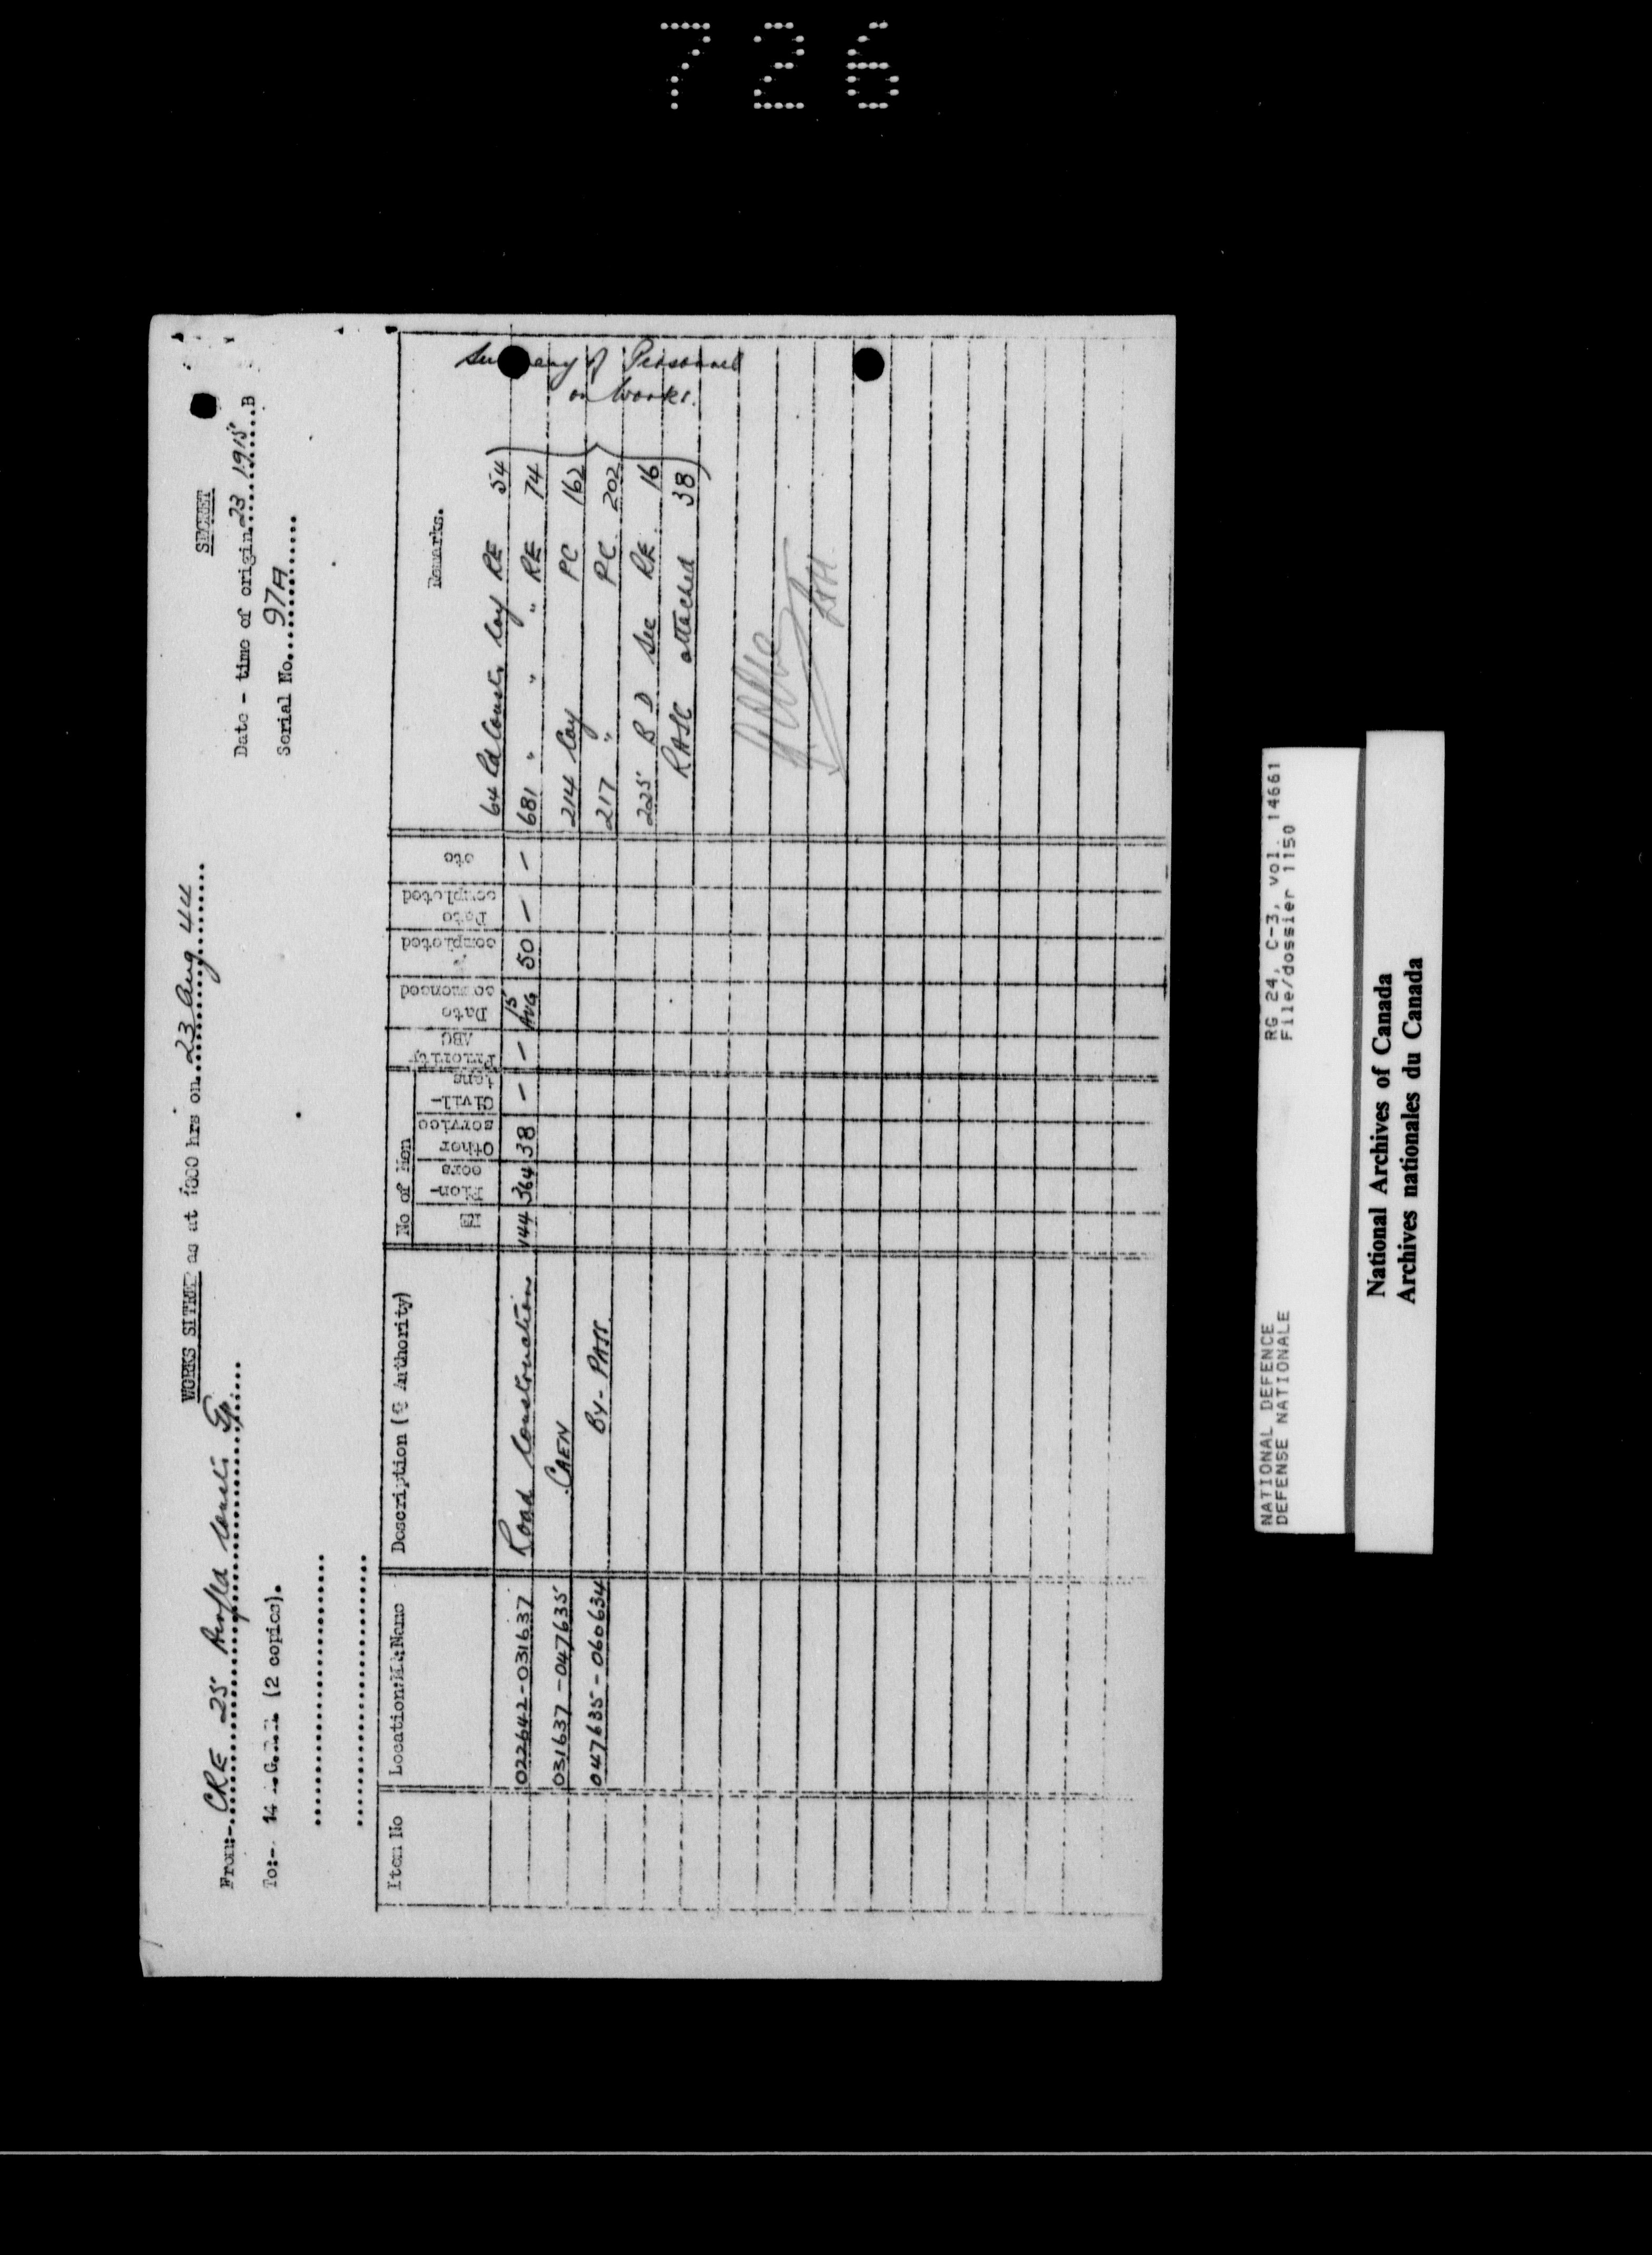 726
SECRET
WORKS SITREP as at 1000 hrs on 23 Aug 44
From:- CRE 25 Airfld Constr Gp
Date - time of origin 23 1915 B
To:- 14 (2 copies).
Serial No. 97A
Item No
Location: Name
Description (& Authority)
No of Men
RE
Pion-eers
Other service
Civil-ians
Priority ABC
Date commenced
% completed
Date completed
etc
Remarks.
022642-031637 Road Construction 144 364 38 - - 15 AUG 50 - - 64 Rd Constr Coy RE 54
031637-047635 CAEN 681 " " " RE 74
047635-060634 BY-PASS 214 Coy PC 162
217 " PC 202
225 B D Sec RE 16
RASC attached 38
Summary of Personnel
on Works.
NATIONAL DEFENCE RG 24, C-3, vol. 14661
DEFENSE NATIONALE File/dossier 1150
National Archives of Canada
Archives nationales du Canada